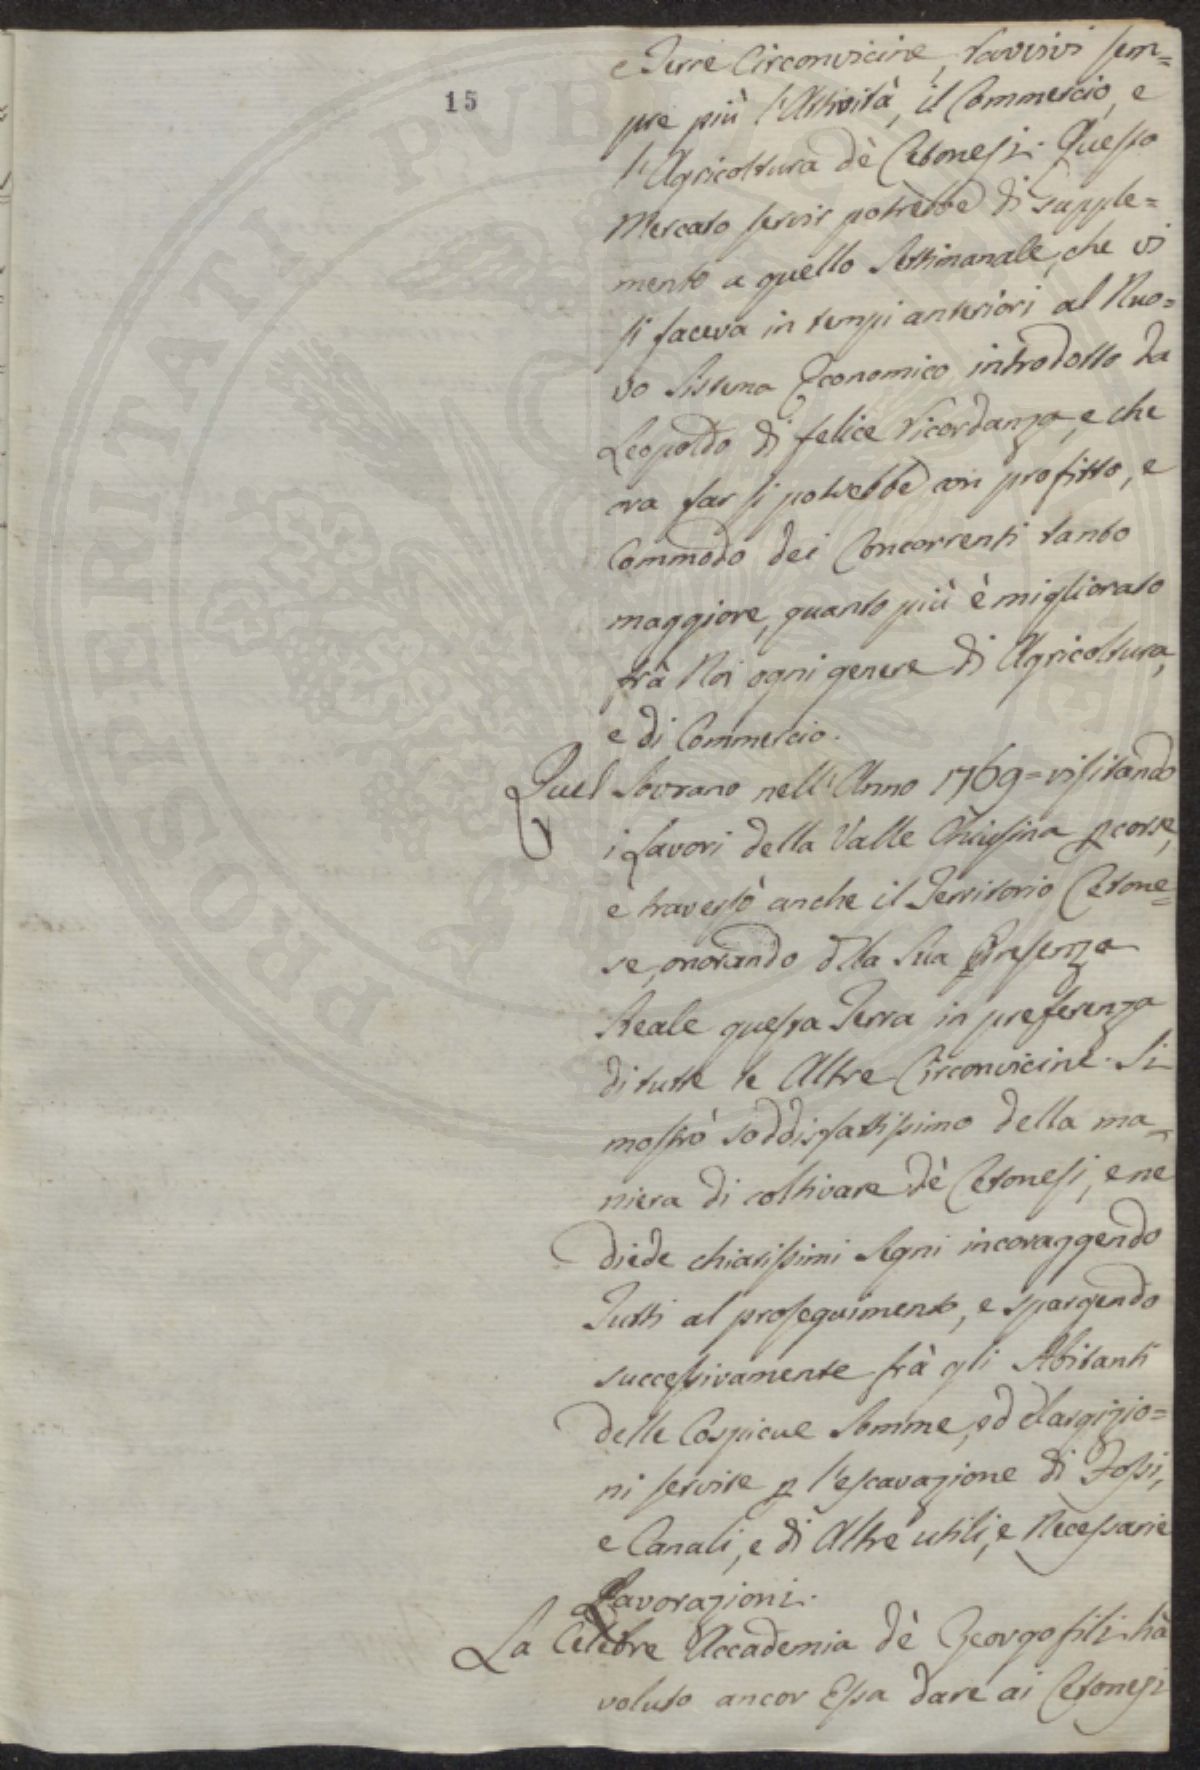 15
e Terre Circonvicine, ravvivi sem=
pre più l'Attività, il Commercio, e
l'Agricoltura dè Cetonesi. Questo
Mercato servir potrebbe di Supple=
mento a quello Settimanale, che vi
si faceva in tempi anteriori al Nuo=
vo Sistema Economico introdotto da
Leopoldo di felice ricordanza, e che
ora far si potrebbe con profitto, e
Commodo dei Concorrenti tanto
maggiore, quanto più è migliorato
frà Noi ogni genere di Agricoltura,
e di Commercio.
Quel Sovrano nell'Anno 1769= visitando
i Lavori della Valle Chiusina p corse,
e traversò anche il Territorio Cetone=
se, onorando dlla Sua Presenza
Reale questa Terra in preferenza
di tutte le Altre Circonvicine. Si
mostrò soddisfattissimo della ma=
niera di coltivare dè Cetonesi, e ne
diede chiarissimi Segni incoraggendo
Tutti al proseguimento, e spargendo
successivamente frà gli Abitanti
delle Cospicue Somme, ed elargizio=
ni servite p l'escavazione di Fossi,
e Canali, e di Altre utili, e Necessarie
Lavorazioni.
La Celebre Accademia dè Georgofili hà
voluto ancor Essa dare ai Cetonesi
PROSPERITATI PUBLICAE